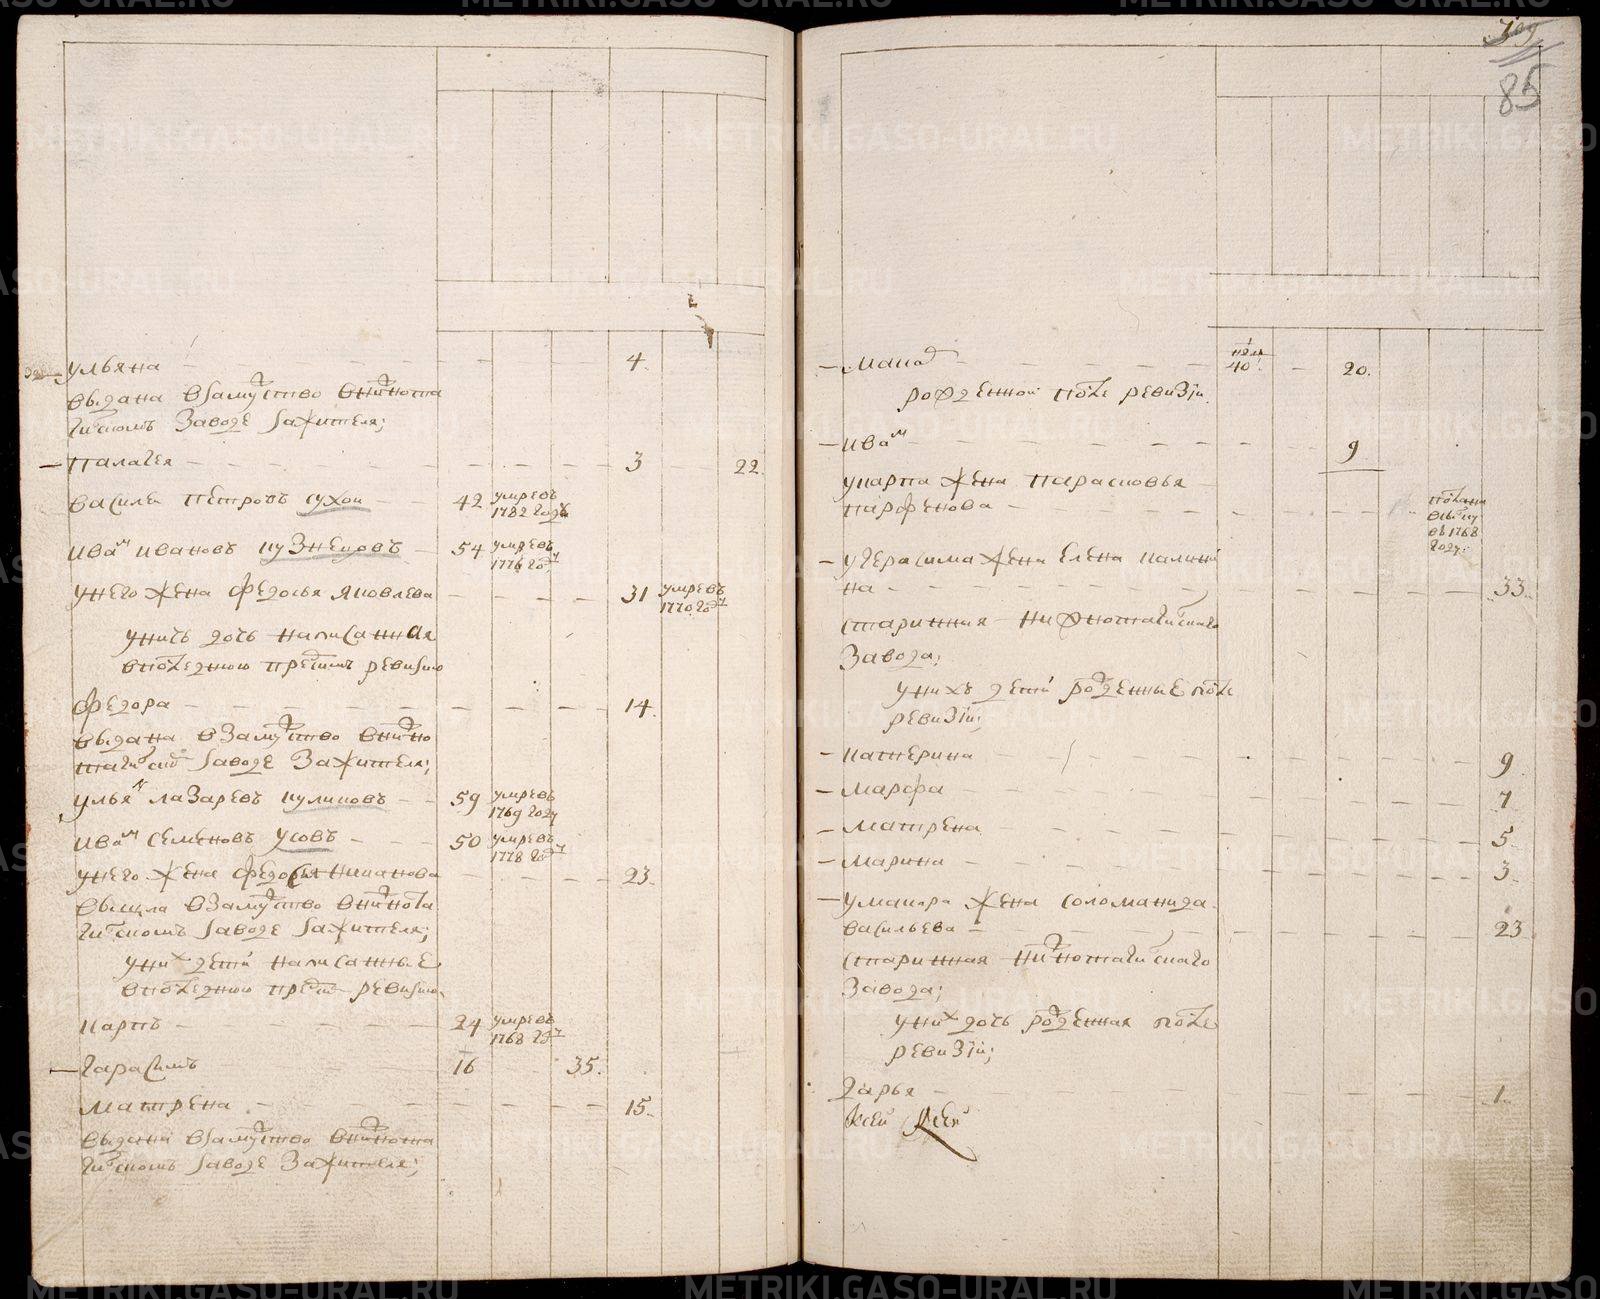 309
85
ульяна 4.
выдана взамуство внижнота
гилскомъ заводе зажителя;
палагея 3 22.
василеи петровъ сухои 42 умревъ 1782 году
иванъ ивановъ кузнецовъ 54 умревъ 1776 году
унего жена федосья яковлева 31 умревъ 1770 году
унихъ дочь написанная
впоследнюю предъ ревизию
федора 14.
выдана взамуство внижно
тагилском заводе зажителя;
ульян лазаревъ куликовъ 59 умревъ 1769 году
иванъ семеновъ усовъ 50 умревъ 1778 году
унего жена федосья 23.
вышла взамуство внижнота
гилскомъ заводе зажителя;
унихъ дети написанные
впоследнюю пред ревизию
карпъ 24 умревъ 1768 году
гарасимъ 16 35.
матрена 15.
выдана взамуство внижнота
гилскомъ заводе зажителя;
макар 40 20.
рожденной после ревизiи.
иванъ 9
укарпа жена парасковья
парфенова
въ 1768 году
угерасима жена елена калини
на 33
старинная нижнотагилскаго
завода;
унихъ дети рожденные после
ревизiи;
катерина 9
марфа 7
матрена 5
марина 3
умакара жена соломанида
васильева 23
старинная нижнотагилскаго
завода;
уних дочь рожденная после
ревизiи;
дарья 1
METRIKI.GASO-URAL.RU